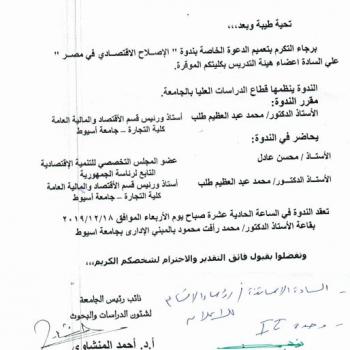 تحية طيبة وبعد،،،
برجاء التكرم بتعميم الدعوة الخاصة بندوة " الإصلاح الاقتصادي في مصر "
علي السادة اعضاء هيئة التدريس بكليتكم الموقرة.
الندوة ينظمها قطاع الدراسات العليا بالجامعة.
مقرر الندوة:
الأستاذ الدكتور/ محمد عبد العظيم طلب
أستاذ ورئيس قسم الأقتصاد والمالية العامة
كلية التجارة – جامعة أسيوط
يحاضر في الندوة:
الأستاذ / محسن عادل
عضو المجلس التخصصي للتنمية الإقتصادية
التابع لرئاسة الجمهورية
الأستاذ الدكتور/ محمد عبد العظيم طلب
أستاذ ورئيس قسم الأقتصاد والمالية العامة
كلية التجارة – جامعة أسيوط
تعقد الندوة في الساعة الحادية عشرة صباح يوم الأربعاء الموافق ٢٠١٩/١٢/١٨
بقاعة الأستاذ الدكتور/ محمد رأفت محمود بالمبني الإدارى بجامعة اسيوط
وتفضلوا بقبول فائق التقدير والاحترام لشخصكم الكريم،،،
نائب رئيس الجامعة
لشئون الدراسات والبحوث
أ.د. أحمد المنشاوى
السادة الاساتذة / رؤساء الاقسام
للاعلام
وحدة IT